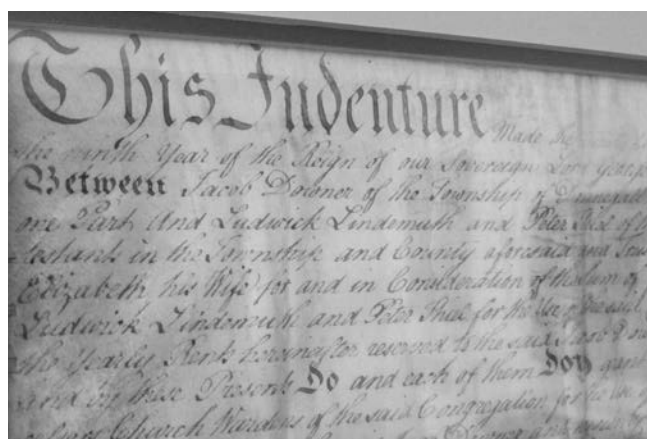 This Indenture Made the
the ninth Year of the Reign of our Sovereign Lord George
Between Jacob Downer of the Township of Dunnegall
one Part And Ludwick Lindemuth and Peter of
testants in the Township and County aforesaid and
Elizabeth his Wife for and in Consideration of the Sum of
Ludwick Lindemuth and Peter for the Use of the said
the Yearly Rent hereinafter reserved to the said Jacob
and by these Presents Do and each of them Doth grant
Church Wardens of the said Congregation for the Use of
Downer